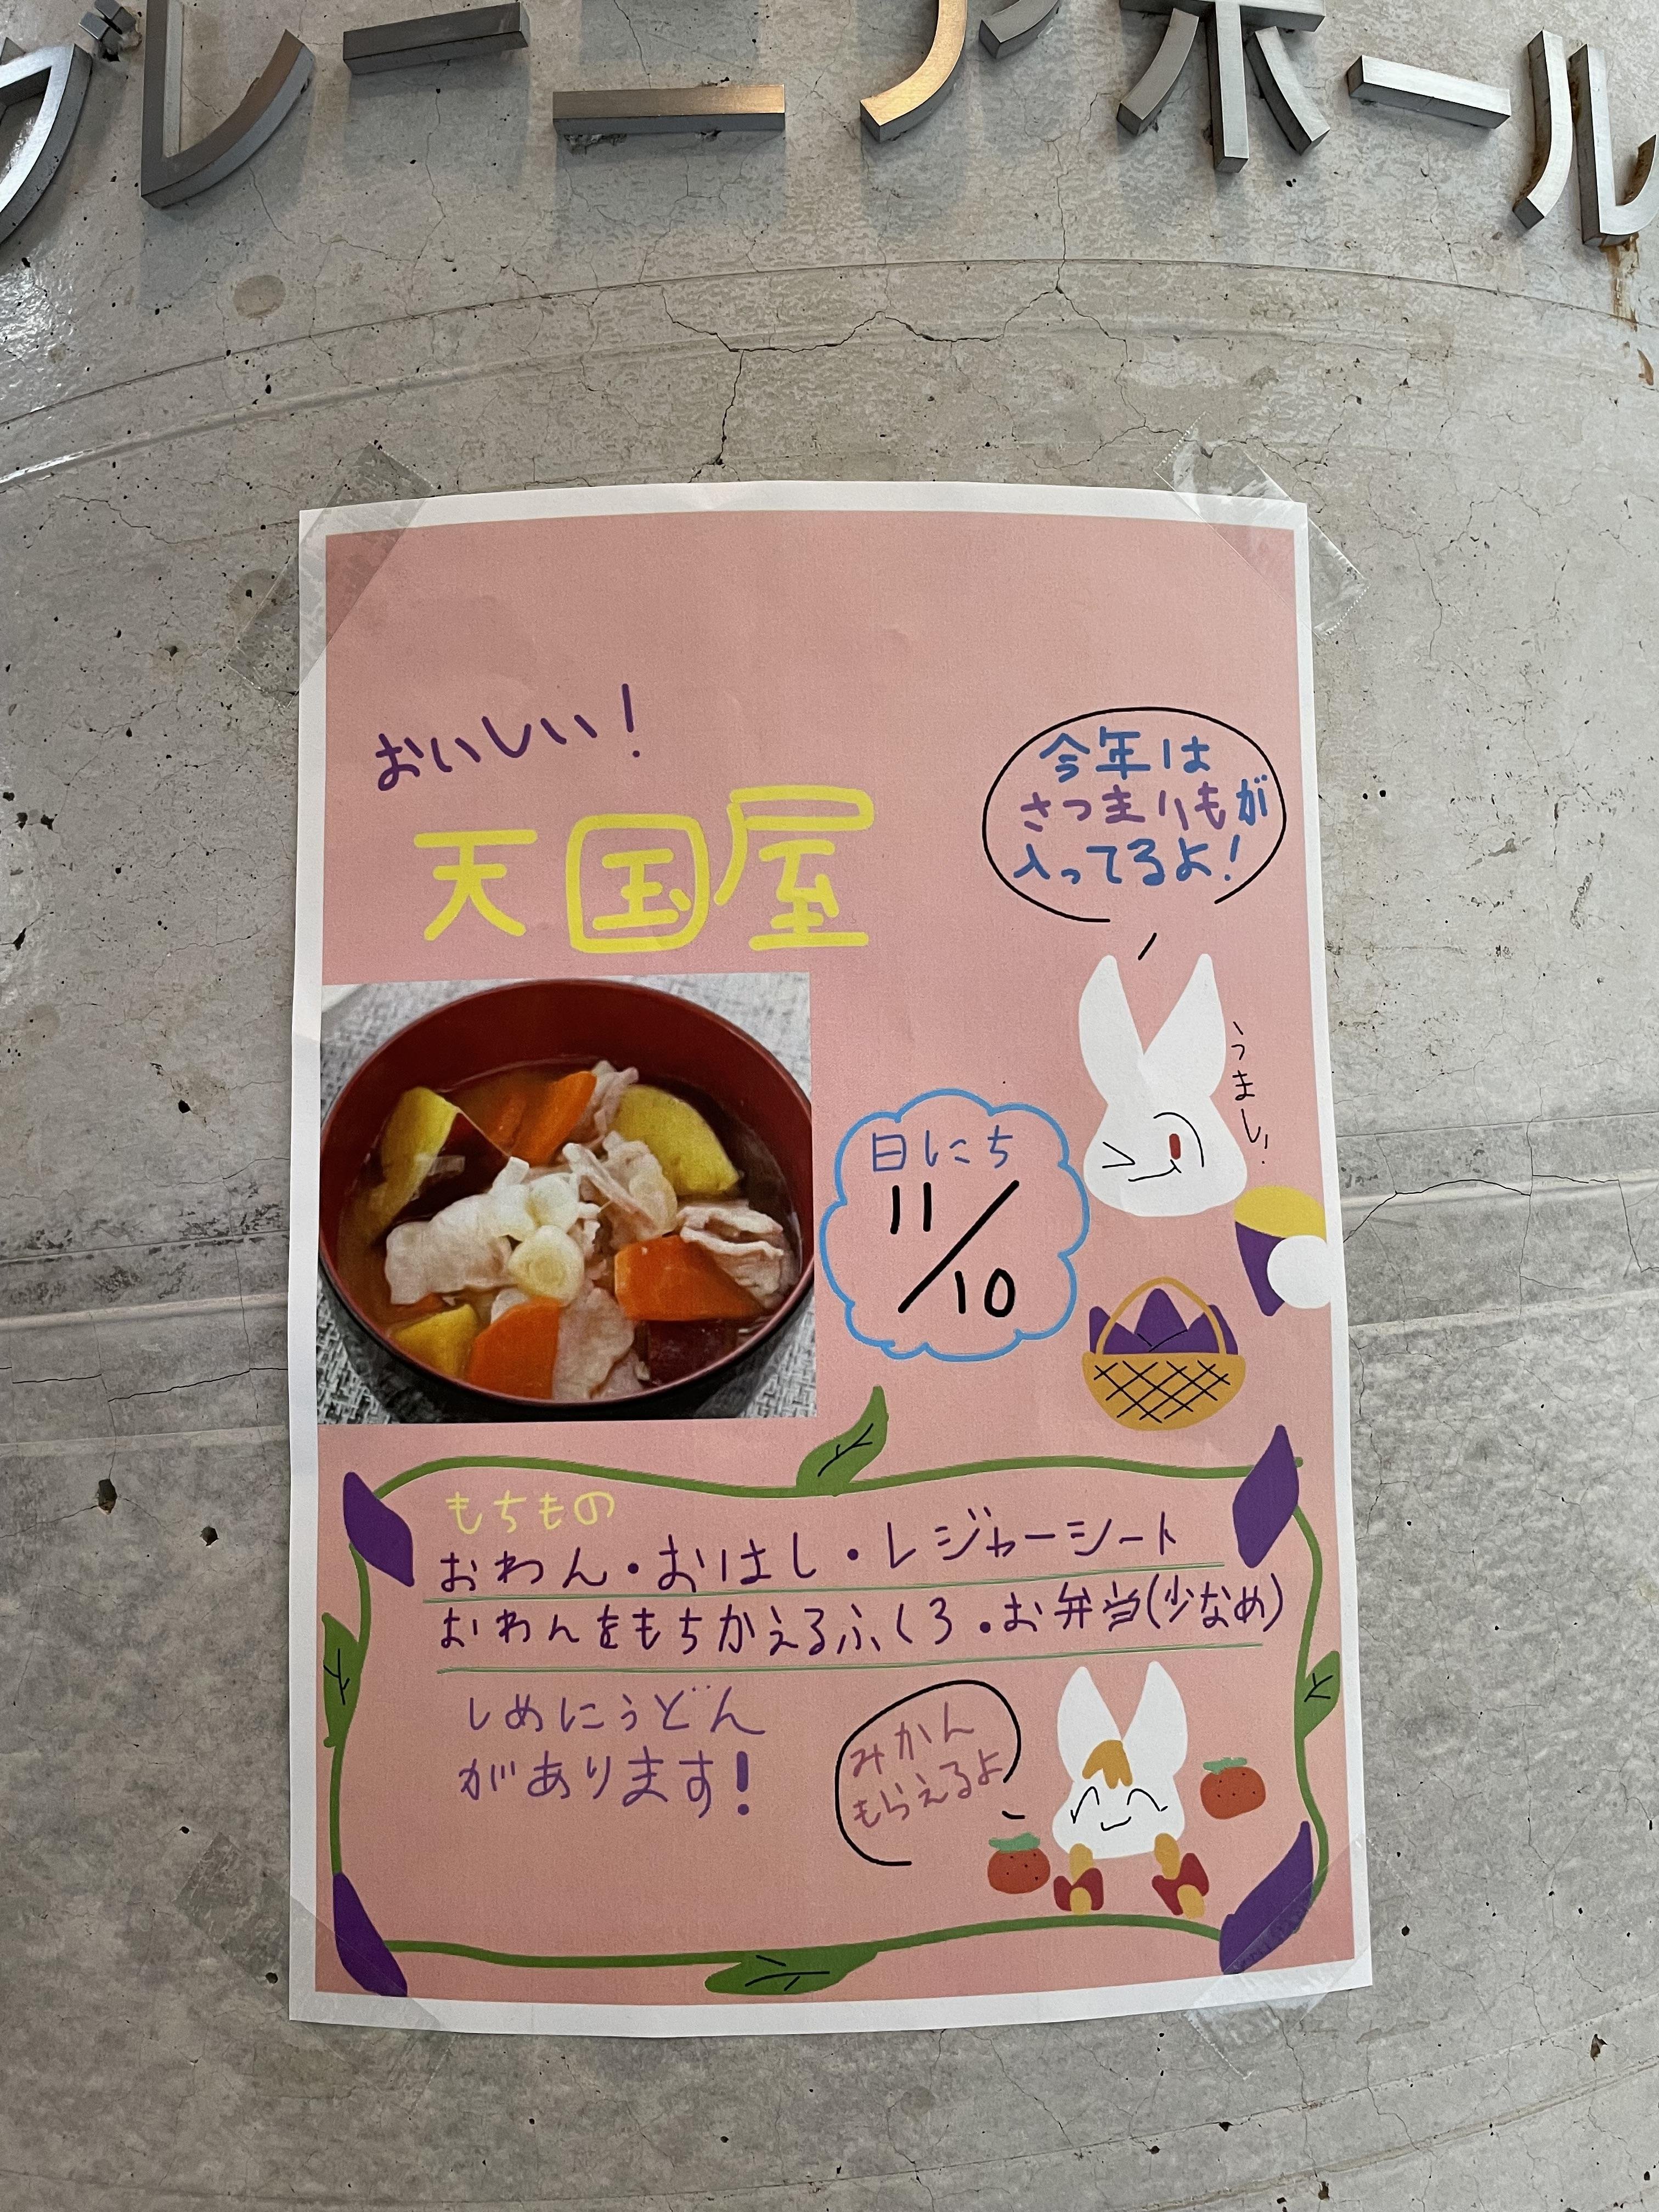 グレーニアホール
おいしい！
天国屋
今年は
さつまいもが
入ってるよ！
うまし！
日にち
11/10
もちもの
おわん・おはし・レジャーシート
おわんをもちかえるふくろ・お弁当(少なめ)
しめにうどん
があります！
みかん
もらえるよ